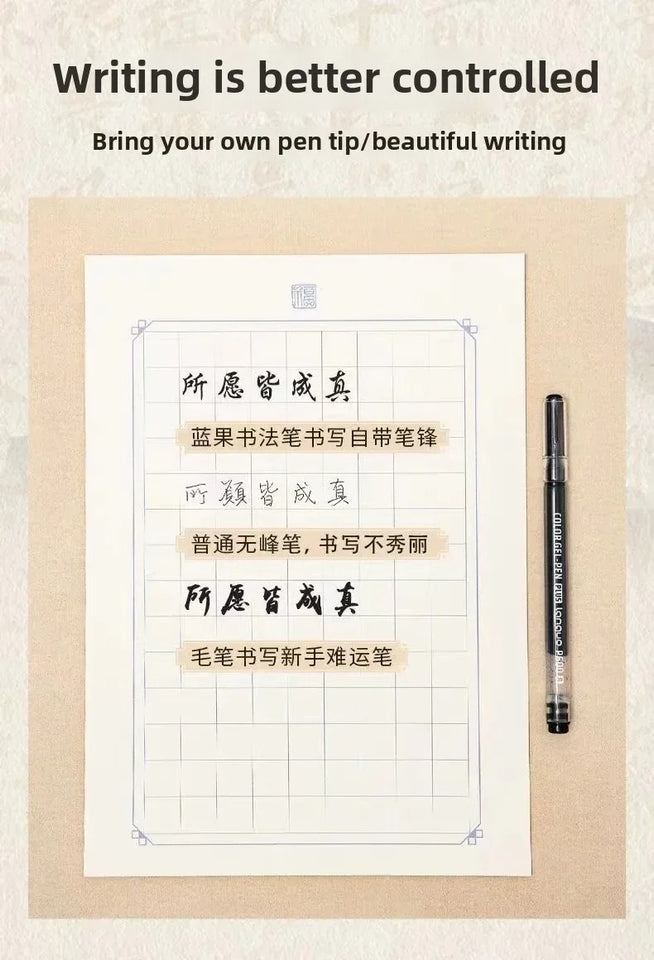 Writing is better controlled
Bring your own pen tip/beautiful writing
所愿皆成真
蓝果书法笔书写自带笔锋
所願皆成真
普通无峰笔，书写不秀丽
所愿皆成真
毛笔书写新手难运笔
COLOR GEL-PEN PLUS languo